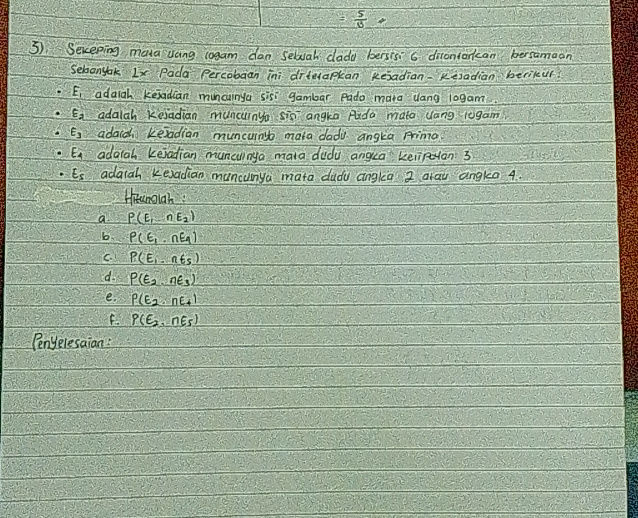 = 5/8
3) Sekeping mata uang logam dan sebuah dadu bersisi 6 dilontarkan bersamaan
Sebanyak 1x Pada Percobaan ini ditetapkan kejadian-kejadian berikut:
• E₁ adalah kejadian munculnya sisi gambar Pada mata uang logam.
• E₂ adalah kejadian munculnya sisi angka Pada mata uang logam.
• E₃ adalah kejadian munculnya mata dadu angka Prima.
• E₄ adalah kejadian munculnya mata dadu angka kelipatan 3
• E₅ adalah kejadian munculnya mata dadu angka 2 atau angka 4.
Hitunglah :
a. P(E₁ ∩E₂)
b. P(E₁ ∩E₄)
c. P(E₁ ∩E₅)
d. P(E₂ ∩E₃)
e. P(E₂ ∩E₄)
f. P(E₂ ∩E₅)
Penyelesaian: